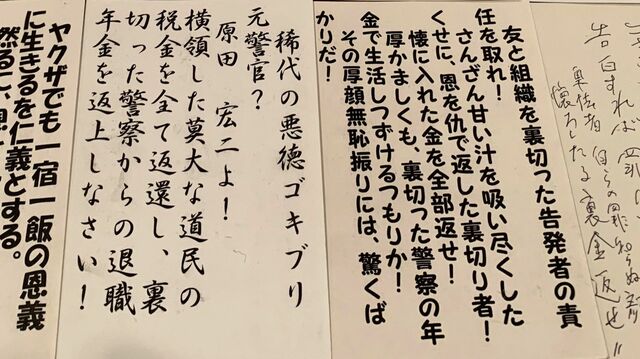 告白すれば
自らの罪知らぬ
裏金返せ!!
友と組織を裏切った告発者の責
任を取れ！
さんざん甘い汁を吸い尽くした
くせに、恩を仇で返した裏切り者！
懐に入れた金を全部返せ！
厚かましくも、裏切った警察の年
金で生活しつずけるつもりか！
その厚顔無恥振りには、驚くば
かりだ！
稀代の悪徳ゴキブリ
元警官？
原田 宏二よ！
横領した莫大な道民の
税金を全て返還し、裏
切った警察からの退職
年金を返上しなさい！
ヤクザでも一宿一飯の恩義
に生きるを仁義とする。
然るに、